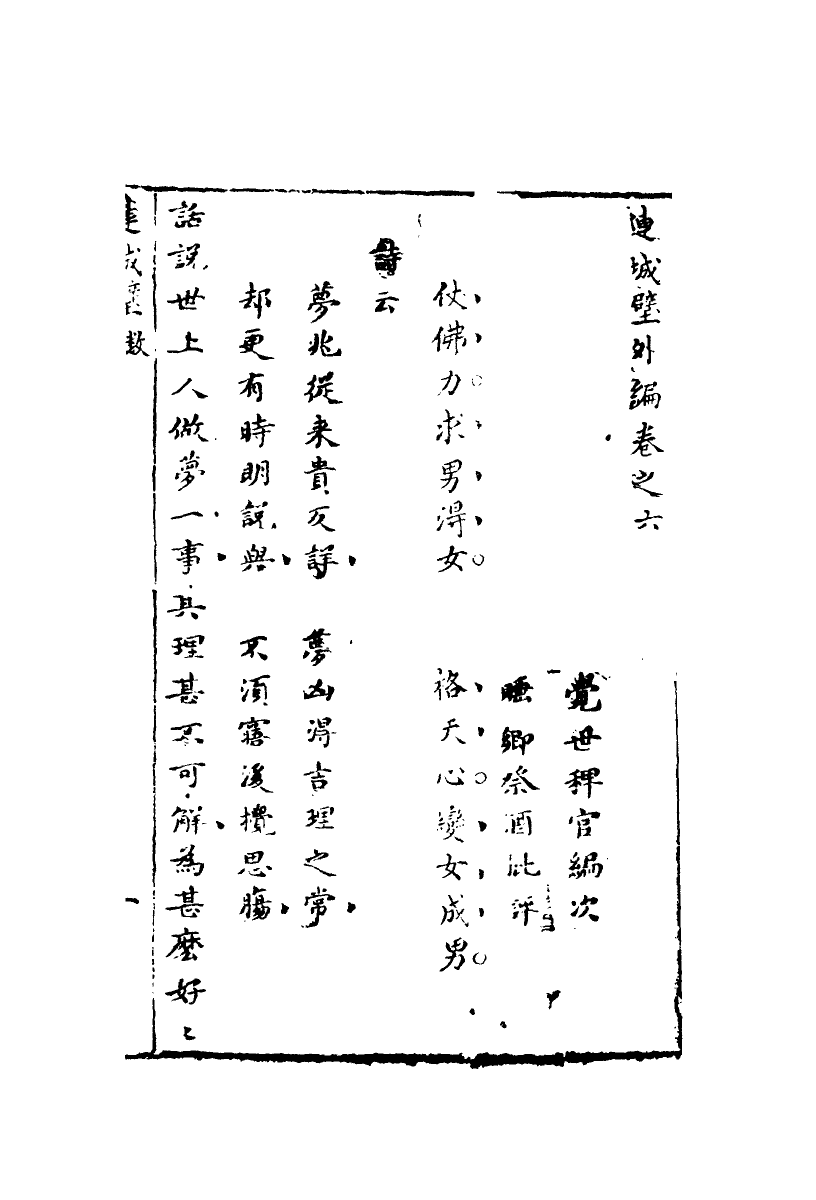 連城壁外編卷之六
覺世稗官編次
睡鄉祭酒批評
仗佛力求男得女　裕天心變女成男
詩云
夢兆從來貴反詳　夢凶得吉理之常
却更有時明說與　不須寤後攪思腸
話說世上人做夢一事其理甚不可解為甚麼好〻